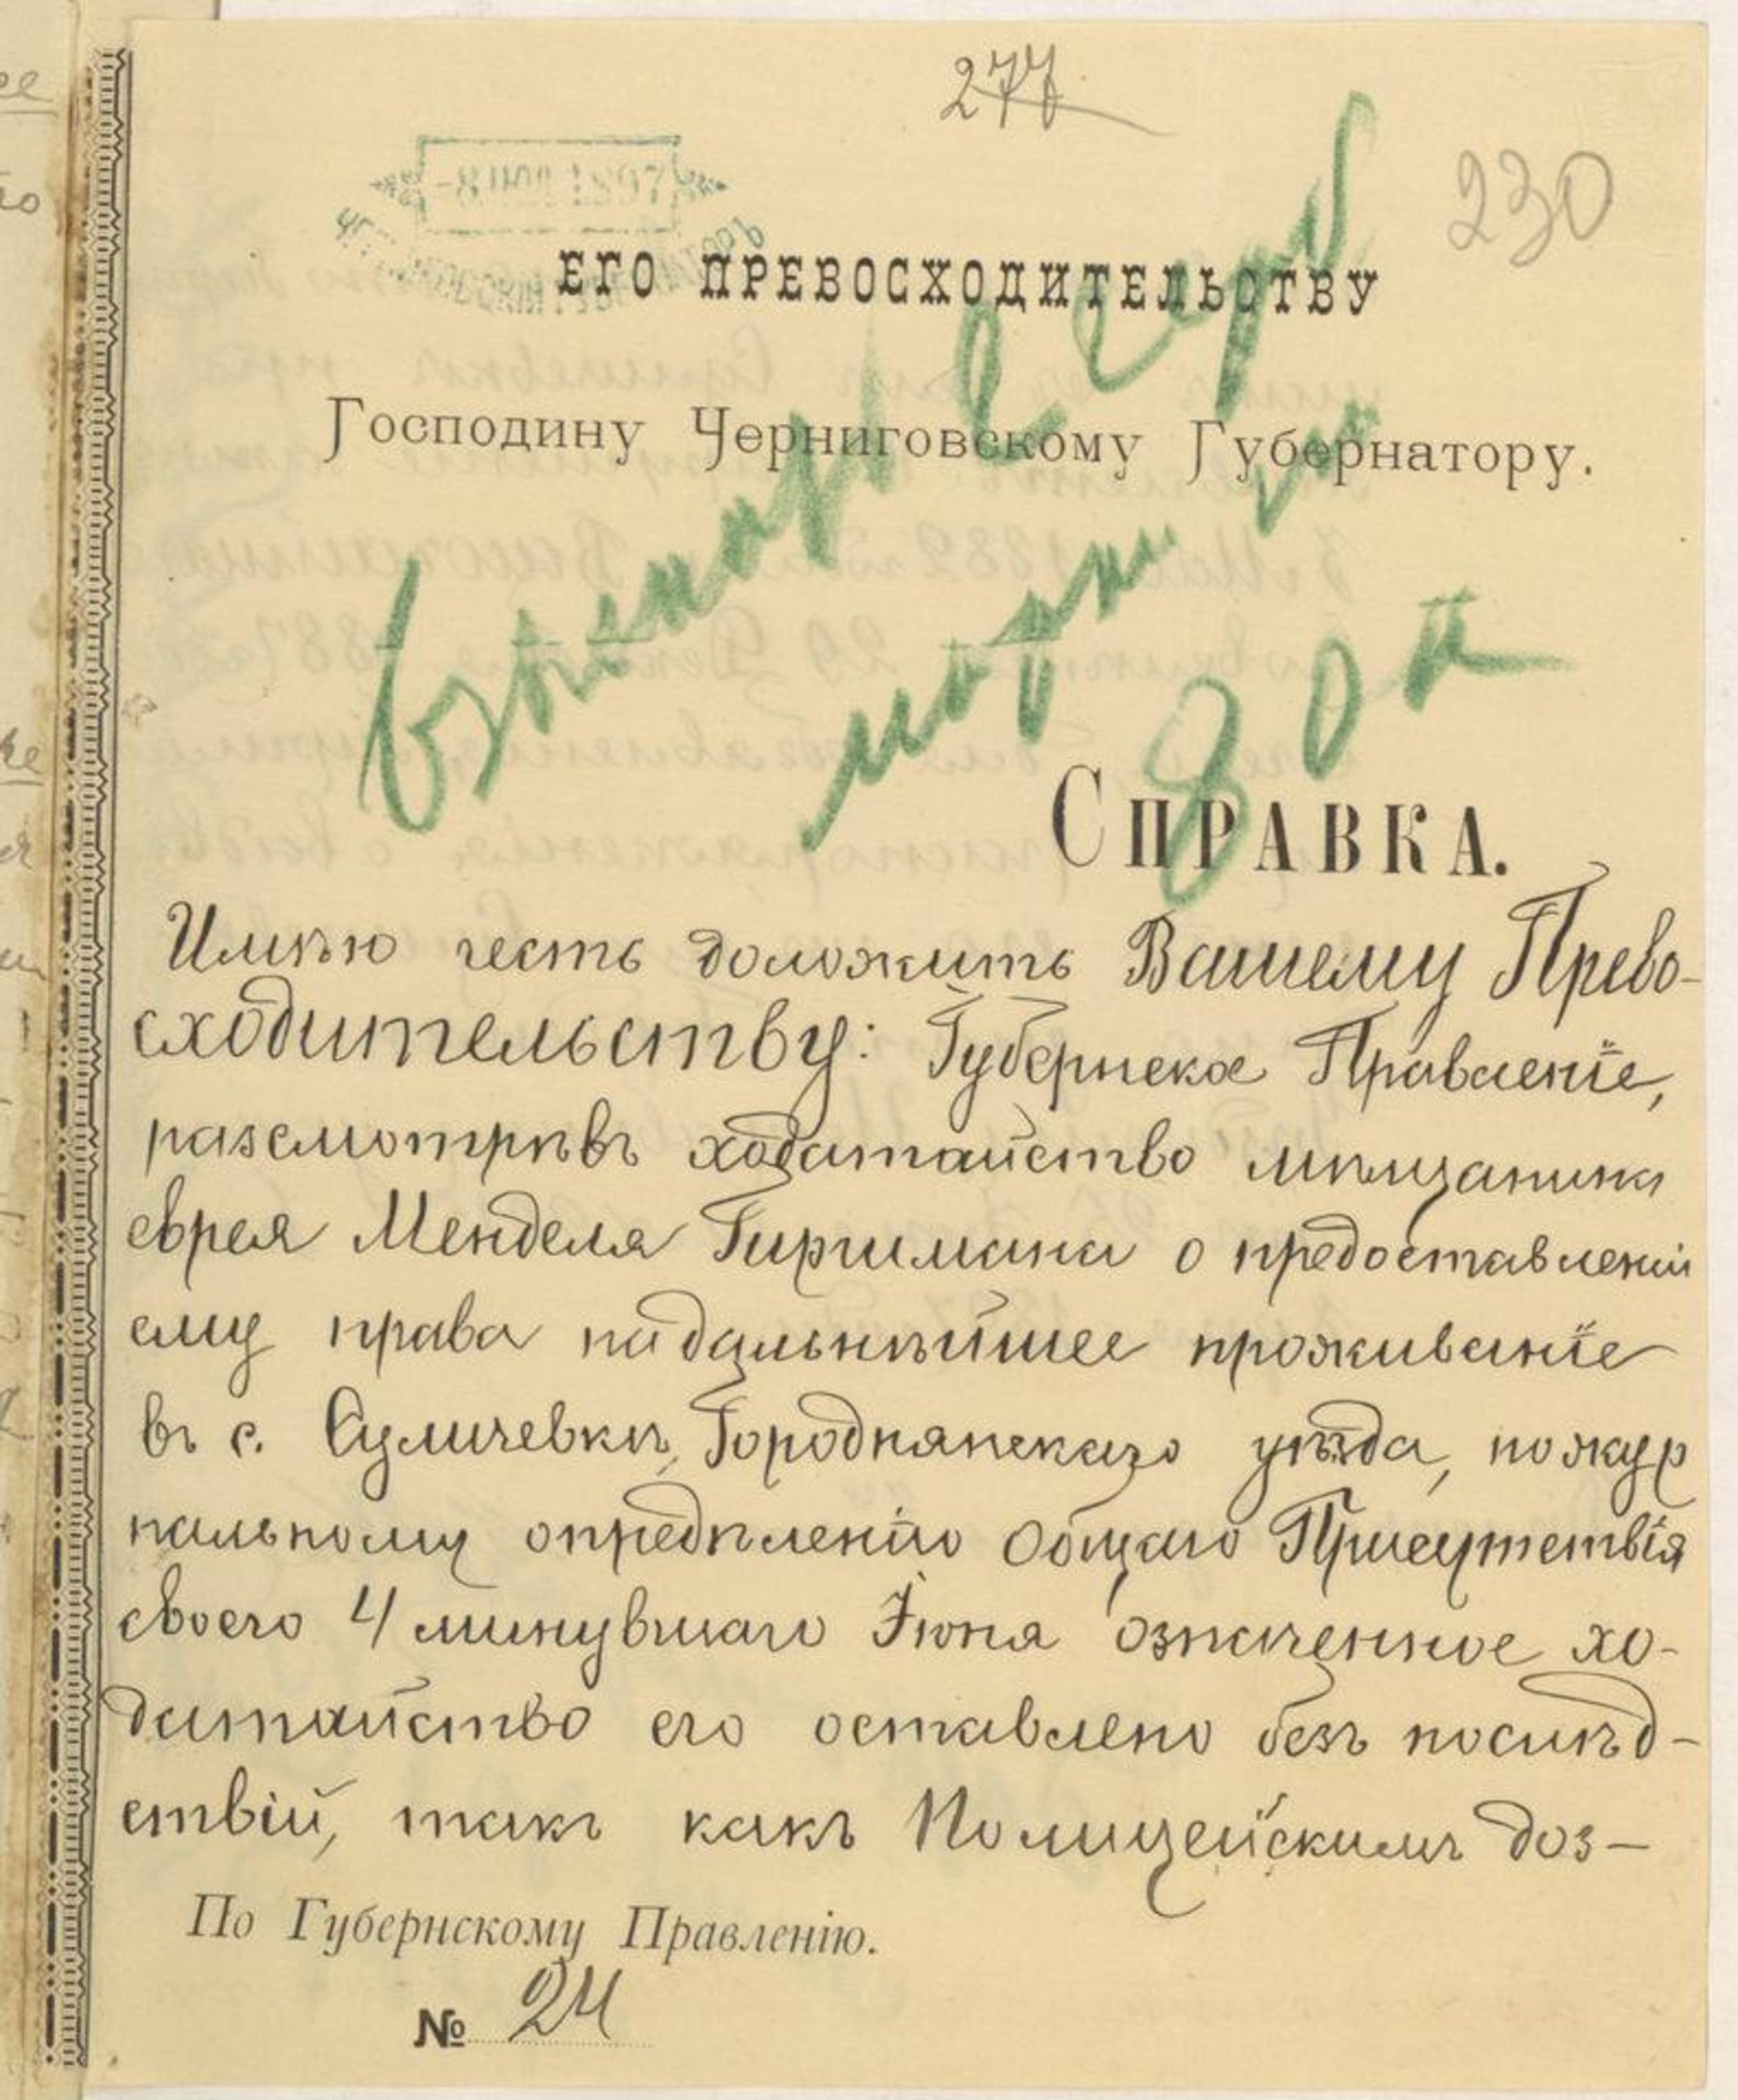 277
230
ЕГО ПРЕВОСХОДИТЕЛЬСТВУ
Господину Черниговскому Губернатору.
СПРАВКА.
Имѣю честь доложить Вашему Прево-
сходительству: Губернское Правленіе,
разсмотрѣвъ ходатайство мѣщанина
еврея Менделя Гиршмана о предоставленіи
ему права на дальнѣйшее проживаніе
въ с. Суличевкѣ, Городнянскаго уѣзда, по жур
нальному опредѣленію Общаго Присутствія
своего 4 минувшаго Іюня означенное хо-
датайство его оставлено безъ послѣд-
ствій, такъ какъ Полицейскимъ доз-
По Губернскому Правленію.
№ 24